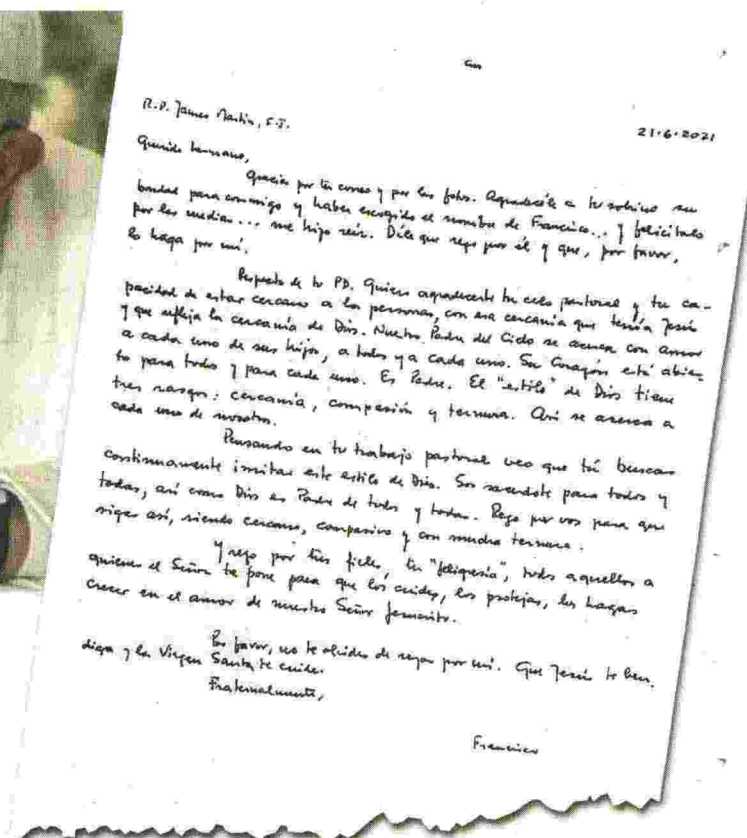 R.P. James Martin, S.J.
21-6-2021
Querido hermano,
Gracias por tu correo y por las fotos. Agradecele a tu sobrino su
bondad para conmigo y haber escogido el nombre de Francisco... y felicitalo
por las medias... me hizo reir. Dile que rezo por él y que, por favor,
lo haga por mí.
Respecto de tu PD. Quiero agradecerte tu celo pastoral y tu ca-
pacidad de estar cercano a las personas, con esa cercanía que tenía Jesús
y que refleja la cercanía de Dios. Nuestro Padre del Cielo se acerca con amor
a cada uno de sus hijos, a todos y a cada uno. Su Corazón está abier-
to para todos y para cada uno. Es Padre. El "estilo" de Dios tiene
tres rasgos: cercanía, compasión y ternura. Así se acerca a
cada uno de nosotros.
Pensando en tu trabajo pastoral veo que tú buscas
continuamente imitar este estilo de Dios. Sos sacerdote para todos y
todas, así como Dios es Padre de todos y todas. Rezo por vos para que
sigas así, siendo cercano, compasivo y con mucha ternura.
Y rezo por tus fieles, tu "feligresía", todos aquellos a
quienes el Señor te pone para que los cuides, los protejas, los hagas
crecer en el amor de nuestro Señor Jesucristo.
Por favor, no te olvides de rezar por mí. Que Jesús te ben-
diga y la Virgen Santa te cuide.
Fraternalmente,
Francisco